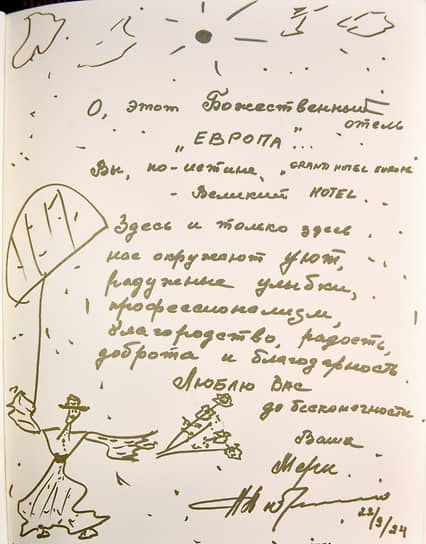 О, этот Божественный
отель
„ЕВРОПА"...
Вы, по-истине, „GRAND HOTEL EUROPE"
- Великий HOTEL.
Здесь и только здесь
нас окружают уют,
радужные улыбки,
профессионализм,
благородство, радость,
доброта и благодарность.
Люблю Вас
до бесконечности.
Ваша
Мери
22/9/24